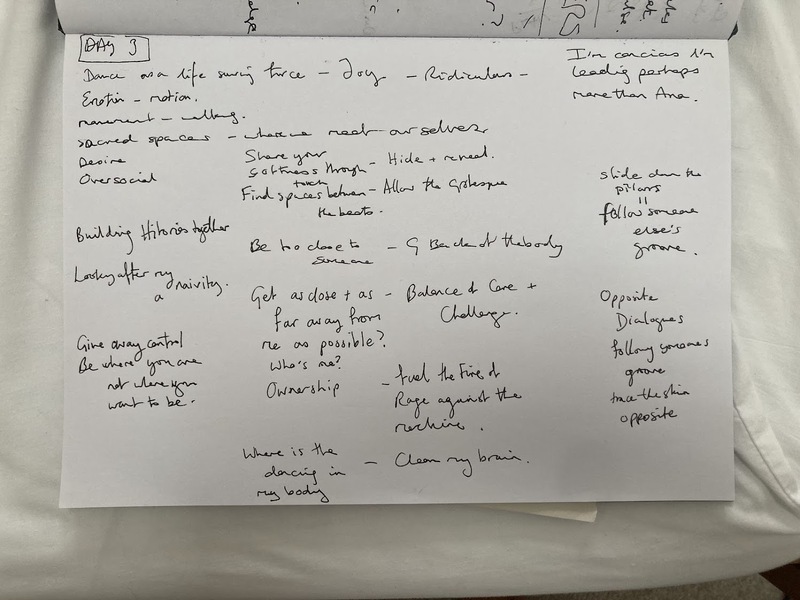 DAY 3
Dance as a life saving force - Joy - Ridiculous -
Emotion - motion.
movement - walking.
sacred spaces - where we meet ourselves
Desire
Oversocial
Building Hitories together
Looking after my
a naivity.
Give away control
Be where you are
not where you
want to be.
Share your
softness through - Hide + reveal.
touch
Find spaces between - Allow the Grotesque
the beats.
Be too close to - Back of the body
someone
Get as close + as - Balance of Care +
far away from Challenge.
me as possible?
Who's me?
Ownership - fuel the Fire of
Rage against the
machine.
Where is the
dancing in - Clean my brain.
my body
I'm concious I'm
leading perhaps
more than Ana.
slide down the
pillars
=
follow someone
else's
groove.
Opposite
Dialogues
following someones
groove
trace the skin
opposite